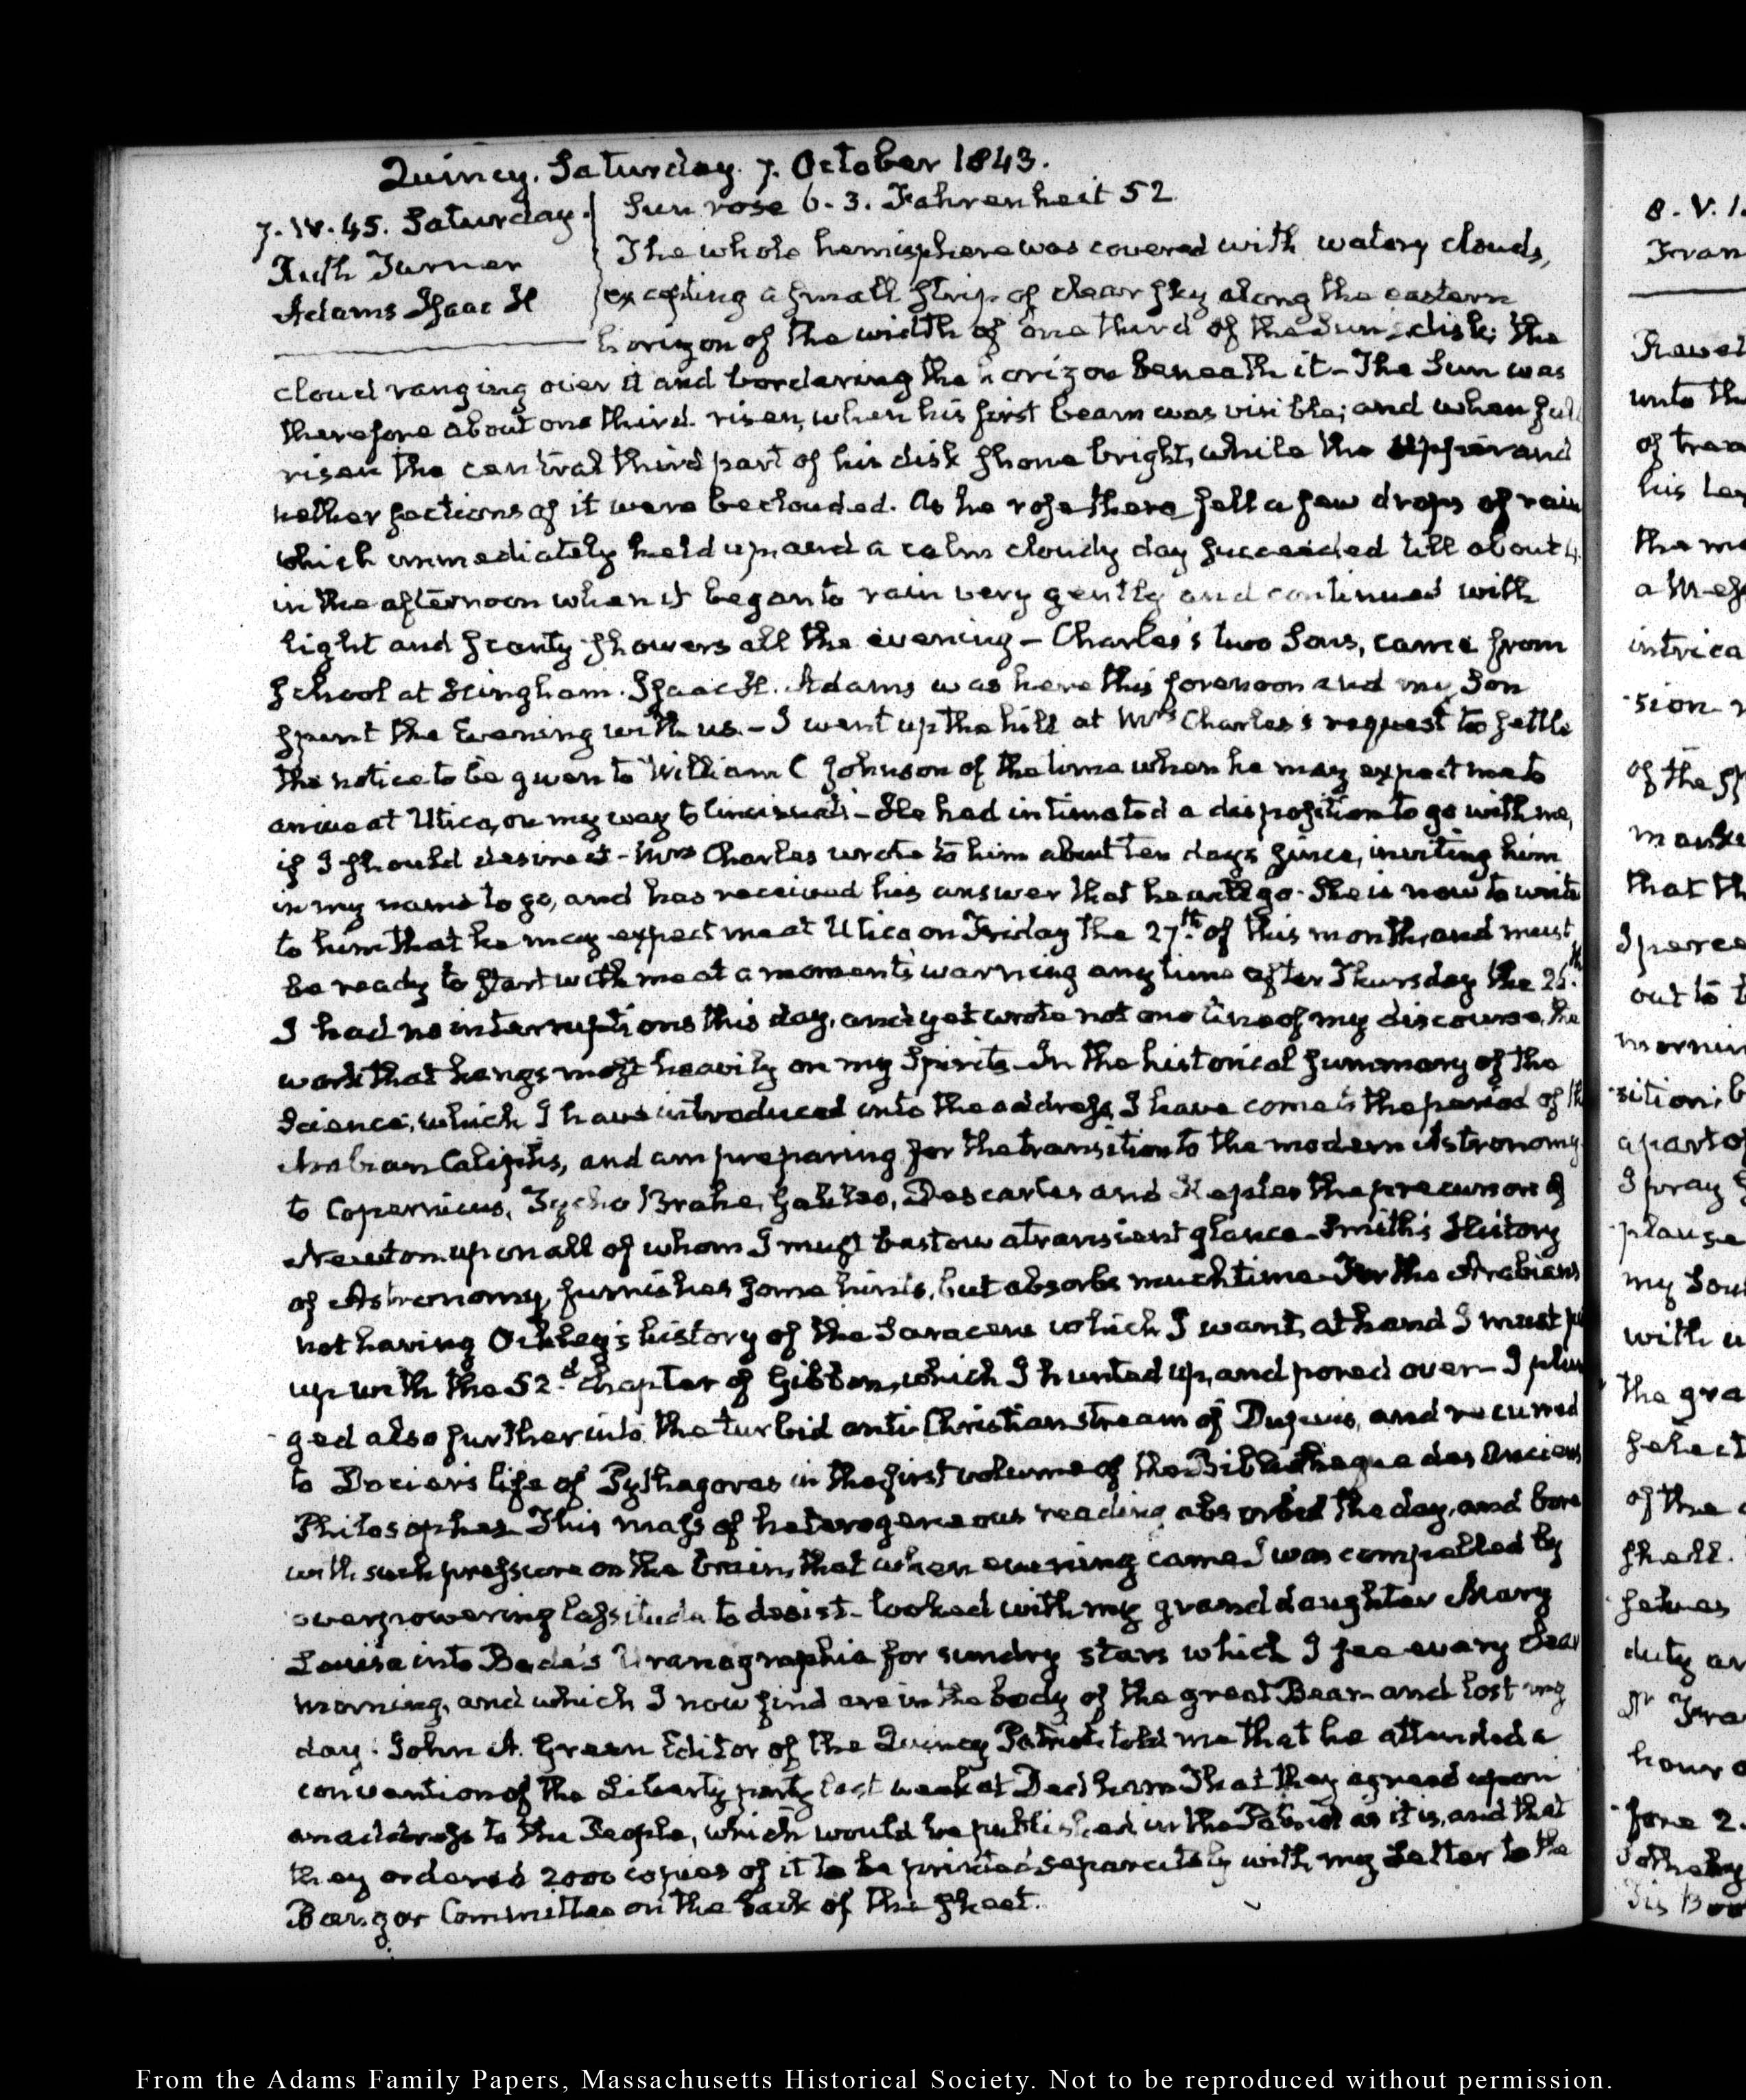 Quincy. Saturday. 7. October 1843.
7. IV. 45. Saturday.
Ruth Turner
Adams Isaac H
Sun rose 6. 3. Fahrenheit 52
The whole hemisphere was covered with watery clouds,
excepting a small strip of clear sky along the eastern
horizon of the width of one third of the Sun's disk; the
cloud ranging over it and bordering the horizon beneath it – The Sun was
therefore about one third risen, when his first beam was visible; and when full
risen the central third part of his disk shone bright, while the upper and
nether sections of it were beclouded. As he rose there fell a few drops of rain
which immediately held up and a calm cloudy day succeeded till about 4.
in the afternoon when it began to rain very gently and continued with
light and scanty showers all the evening – Charles's two Sons, came from
School at Hingham. Isaac H. Adams was here this forenoon and my Son
spent the Evening with us – I went up the hill at Mrs Charles's request to settle
the notice to be given to William C Johnson of the time when he may expect me to
arrive at Utica, on my way to Cincinnati – He had intimated a disposition to go with me,
if I should desire it – Mrs Charles wrote to him about ten days since, inviting him
in my name to go, and has received his answer that he will go. She is now to write
to him that he may expect me at Utica on Friday the 27th of this month, and must
be ready to start with me at a moment's warning any time after Thursday the 26th.
I had no interruptions this day, and yet wrote not one line of my discourse, the
work that hangs most heavily on my Spirits – In the historical summary of the
Science, which I have introduced into the address, I have come to the period of the
Arabian Caliphs, and am preparing for the transition to the modern Astronomy
to Copernicus, Tycho Brahe, Galileo, Descartes and Kepler the precursor of
Newton upon all of whom I must bestow a transient glance – Smith's History
of Astronomy, furnishes some hints, but absorbs much time – For the Arabians
not having Ockley's history of the Saracens which I want, at hand I must put
up with the 52d chapter of Gibbon, which I hunted up, and pored over – I plun
ged also further into the turbid anti-Christian stream of Dupuis, and recurred
to Dacier's life of Pythagoras in the first volume of the Bibliotheque des Anciens
Philosophes – This mass of heterogeneous reading absorbed the day, and bore
with such pressure on the brain, that when evening came I was compelled by
overpowering lassitude to desist – looked with my grand daughter Mary
Louisa into Bode's Uranographia for sundry stars which I see every clear
morning, and which I now find are in the body of the great Bear – and lost my
day. John A. Green Editor of the Quincy Patriot, told me that he attended a
convention of the Liberty party last week at Dedham That they agreed upon
an address to the People, which would be published in the Patriot as it is, and that
they ordered 2000 copies of it to be printed separately with my Letter to the
Bangor Committee on the back of the sheet.
From the Adams Family Papers, Massachusetts Historical Society. Not to be reproduced without permission.